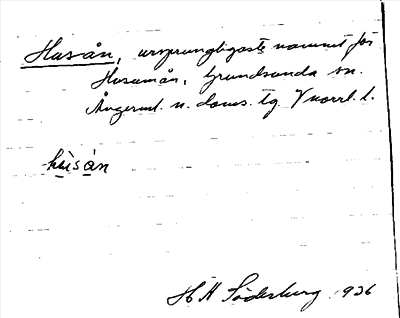 Husån, ursprungligaste namnet för
Husumån, Grundsunda sn.
Ångerml. n. doms. tg. V norrl. l.
hùsån
H H Söderburg 1926